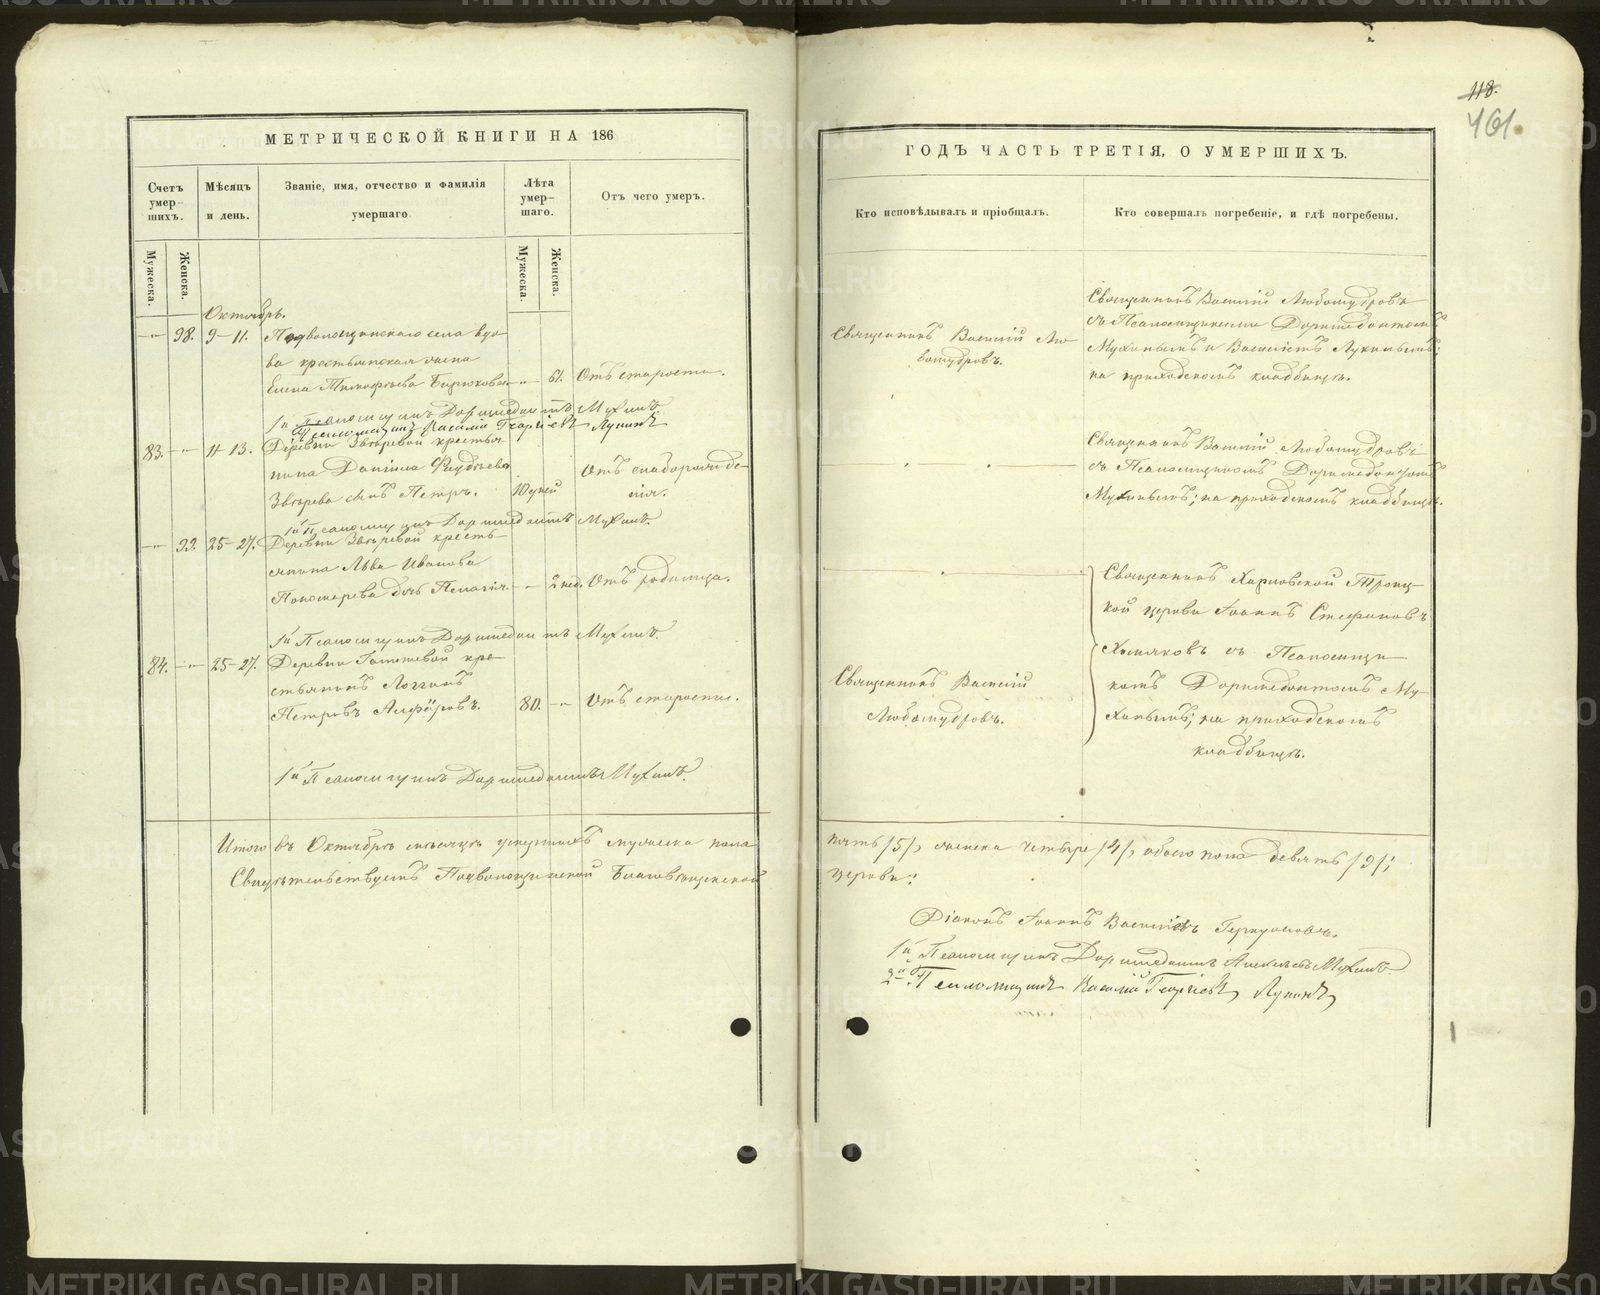 МЕТРИЧЕСКОЙ КНИГИ НА 186
Счетъ умер-шихъ.
Мѣсяцъ и день.
Званіе, имя, отчество и фамилія умершаго
Лѣта умер-шаго.
Отъ чего умеръ.
Мужеска.
Женска.
Мужеска.
Женска.
Октябрь.
— „ — 98. 9–11. Подволошинскаго села вдо-
ва крестьянская жена
Елена Тимофѣева Бирюкова — „ 61. Отъ старости.
1й Псаломщикъ Доримедонтъ Мухинъ
2й Псаломщикъ Василій Георгіевъ Лукинъ
83. — „ — 11–13. Деревни Звѣревой крестья-
нина Даніила
Звѣрева сынъ Петръ. 10 дней Отъ слаборожде-
нія.
1й Псаломщикъ Доримедонтъ Мухинъ.
— „ — 99. 25–27. Деревни Звѣревой кресть-
янина Льва Иванова
Пономарева дочь Пелагія. — „ — 2 нед. Отъ родимца.
1й Псаломщикъ Доримедонтъ Мухинъ.
84. — „ — 25–27. Деревни кре-
стьянинъ Логгинъ
Петровъ Алфёровъ. 80. — „ Отъ старости.
1й Псаломщикъ Доримедонтъ Мухинъ.
Итого въ Октябрѣ мѣсяцѣ умершихъ мужеска пола
Свидѣтельствуетъ Подволошинской Благовѣщенской
118.
461.
ГОДЪ ЧАСТЬ ТРЕТІЯ, О УМЕРШИХЪ.
Кто исповѣдывалъ и пріобщалъ.
Кто совершалъ погребеніе, и гдѣ погребены.
Священникъ Василій Лю-
бомудровъ.
Священникъ Василій Любомудровъ
съ Псаломщиками Доримедонтомъ
Мухинымъ и Василіемъ Лукинымъ;
на приходскомъ кладбищѣ.
Священникъ Василій Любомудровъ
съ Псаломщикомъ Доримедонтомъ
Мухинымъ; на приходскомъ кладбищѣ.
Священникъ Харловской Троиц-
кой церкви Іоаннъ Стефановъ
Хомяковъ съ Псаломщи-
комъ Доримедонтомъ Му-
хинымъ; на приходскомъ
кладбищѣ.
Священникъ Василій
Любомудровъ.
пять /5/, женска четыре /4/, обоего пола девять /9/;
церкви:
Діаконъ Іоаннъ Васильевъ
1й Псаломщикъ Доримедонтъ Алексѣевъ Мухинъ.
2й Псаломщикъ Василій Георгіевъ Лукинъ
METRIKI.GASO-URAL.RU